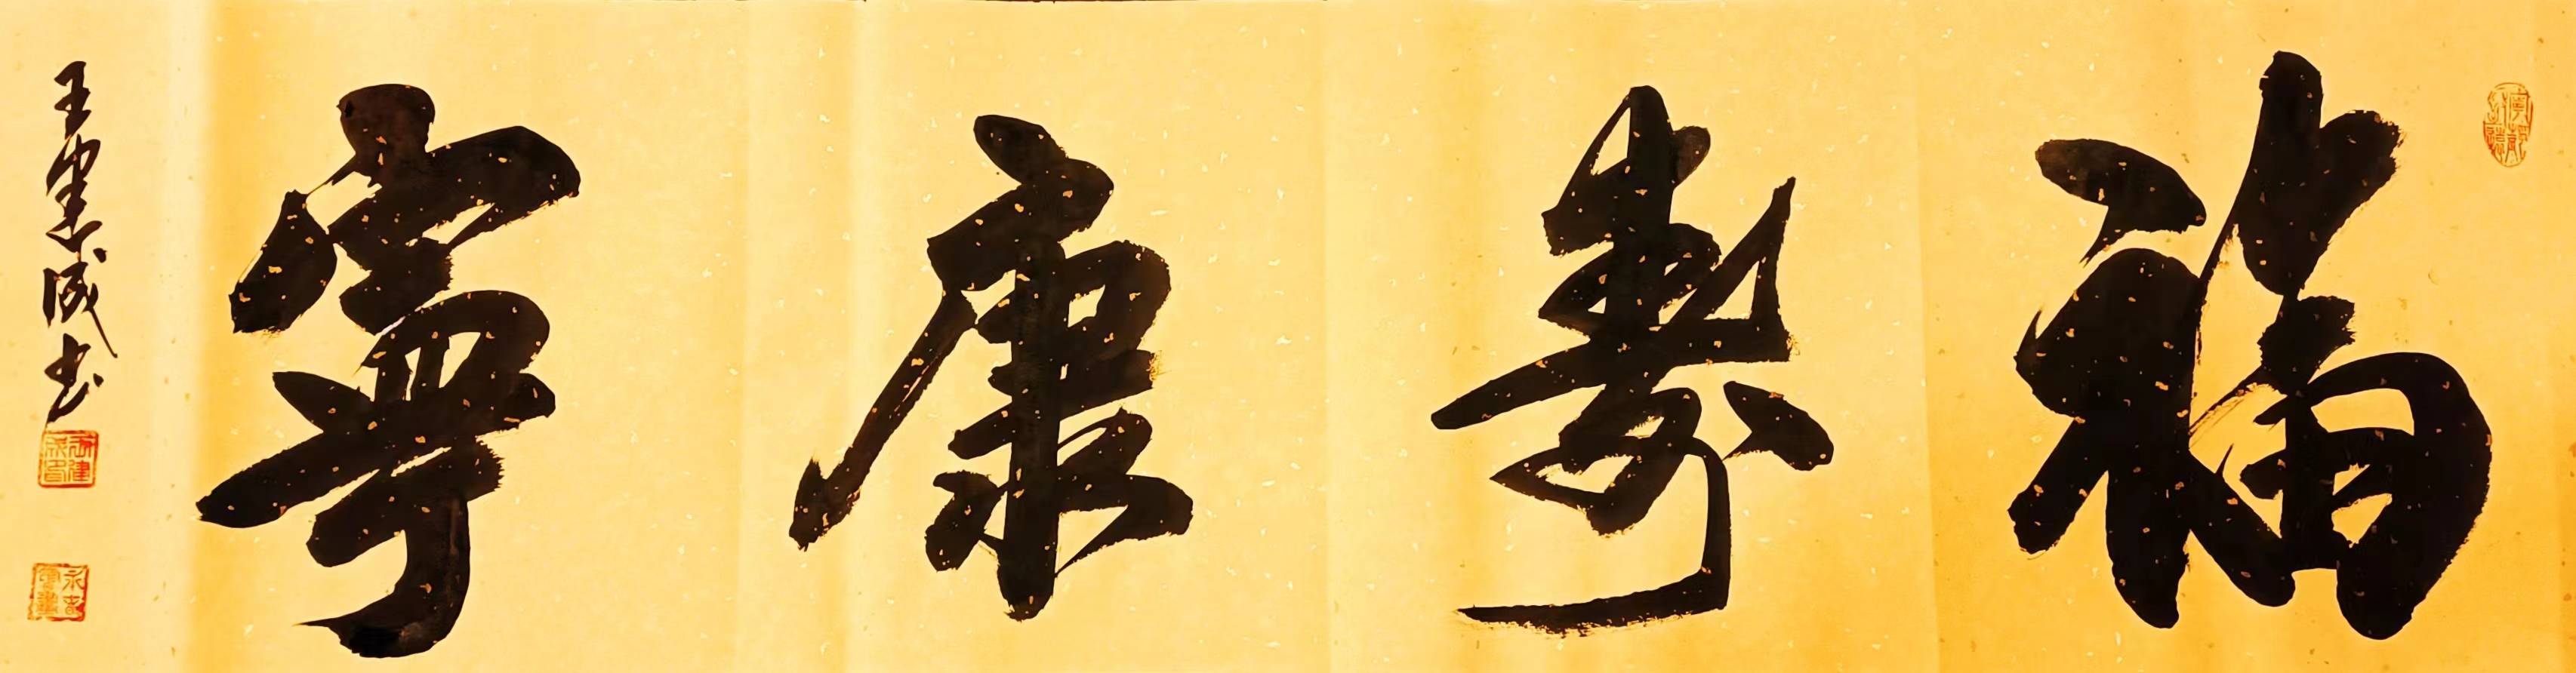 福壽康寧
王建成书